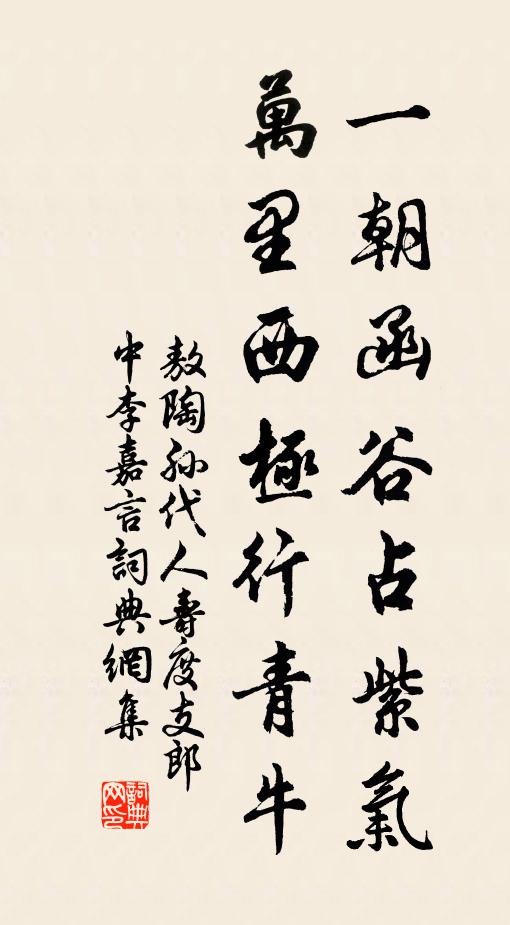 一朝函谷占紫氣
萬里西極行青牛
敖陶孫代人壽度支郎
中李嘉言詞典網集
詞典
网印